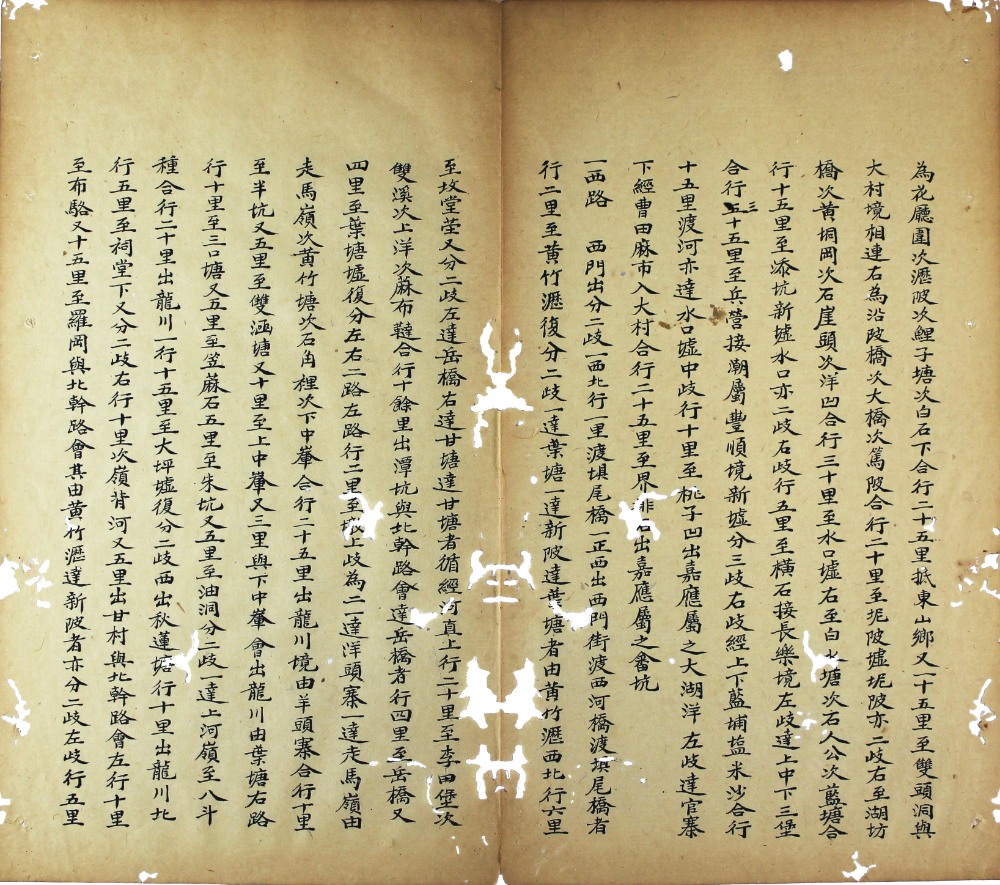 為花廳圍次瀝陂次鯉子塘次白石下合行二十五里抵東山鄉又一十五里至雙頭洞與
大村境相連右為沿陂橋次大橋次篤陂合行二十里至坭陂墟坭陂亦二歧右至湖坊
橋次黃垌岡次石崖頭次洋凹合行三十里至水口墟右至白水塘次石人公次藍塘合
行十五里至添坑新墟水口亦二歧右歧行五里至橫石接長樂境左歧達上中下三堡
合行三十五里至兵營接潮屬豐順境新墟分三歧右歧經上下藍埔塩米沙合行
十五里渡河亦達水口墟中歧行十里至桃子凹出嘉應屬之大湖洋 左歧達官寨
下經曹田麻市入大村合行二十五里至界排石出嘉應屬之畬坑
一西路 西門出分二歧一西北行一里渡垻尾橋一正西出西門街渡西河橋渡垻尾橋者
行二里至黃竹瀝復分二歧一達葉塘一達新陂達葉塘者由黃竹瀝西北行六里
至坟堂茔又分二歧左達岳橋右達甘塘達甘塘者循經河直上行二十里至李田堡次
雙溪次上洋次蔴布韃合行十餘里出潭坑與北幹路會達岳橋者行四里至岳橋又
四里至葉塘墟復分左右二路左路行二里至墩上歧為二一達洋頭寨一達走馬嶺由
走馬嶺次黃竹塘次石角裡次下中輋合行二十五里出龍川境由羊頭寨合行十里
至半坑又五里至雙涵塘又十里至上中輋又三里與下中輋會出龍川由葉塘右路
行十里至三口塘又五里至笠蔴石五里至朱坑又五里至油洞分二歧一達上河嶺至八斗
種合行二十里出龍川一行十五里至大坪墟復分二歧西出秋蓮塘行十里出龍川北
行五里至祠堂下又分二歧右行十里次嶺背河又五里出甘村與北幹路會左行十里
至布駱又十五里至羅岡與北幹路會其由黃竹瀝達新陂者亦分二歧左歧行五里